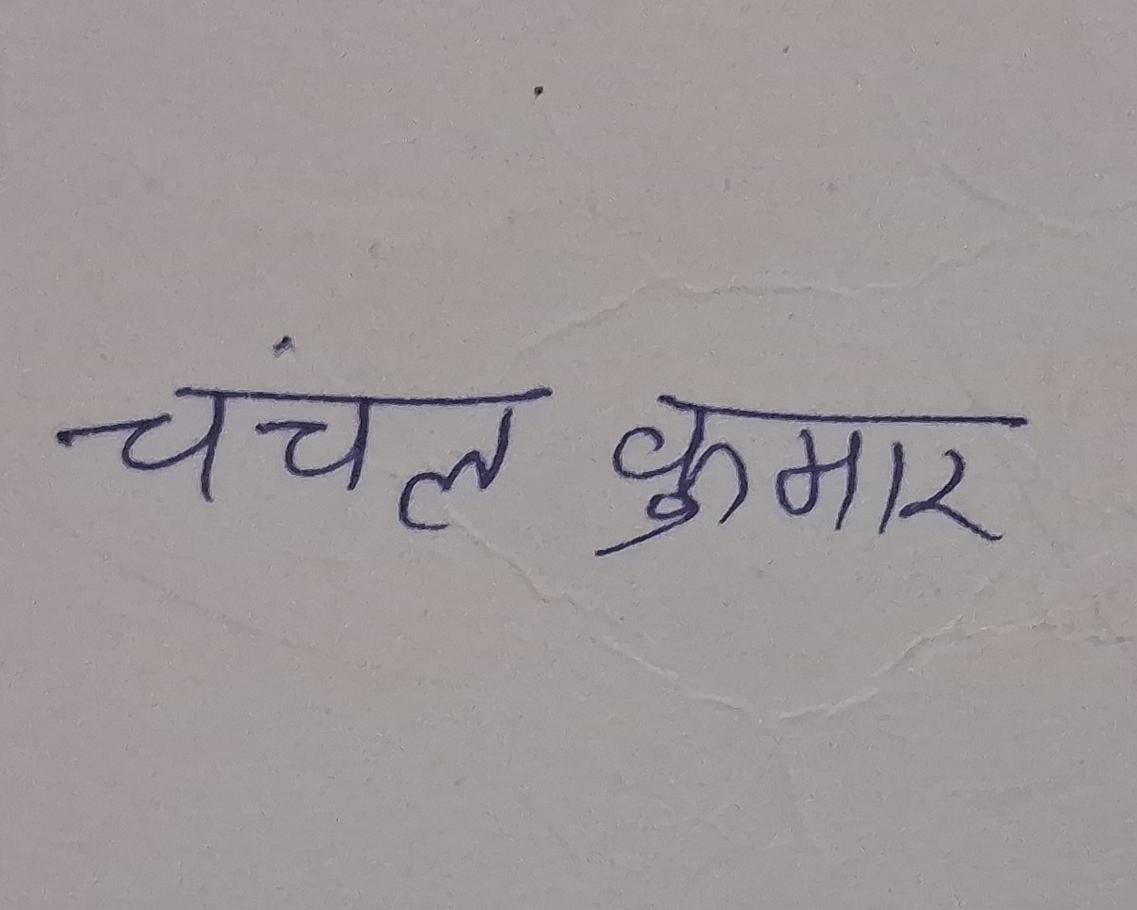 चंचल कुमार